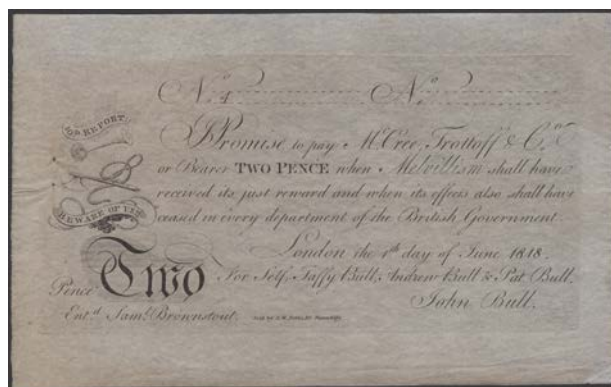 No. 4 No.
10th REPORT
I Promise to pay McCree, Trottoff & Co.
or Bearer TWO PENCE when Melvillism shall have
received its just reward and when its effects also shall have
BEWARE OF
ceased in every department of the British Government
London the 1st day of June 1818.
Two
For Self, Taffy Bull, Andrew Bull & Pat Bull.
Pence
John Bull.
Entd. Saml. Brownstout.